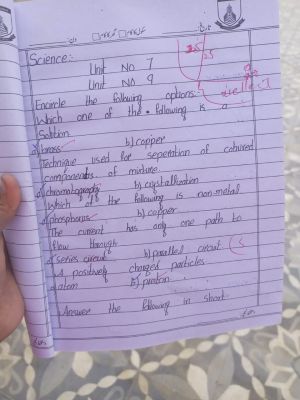 25
25
Science:-
Unit No 7
Unit No 9
Encircle the following options:-
Which one of the following is a
Solution
a) brass b) copper
Technique used for seperation of coloured
components of mixture.
a) chromatography b) crystallization
Which of the following is non-metal
a) phosphorus b) copper
The current has only one path to
flow through
a) series circuit b) parallel circuit
A positively charged particles
a) atom b) proton
Answer the following in short